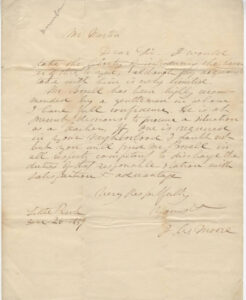 Mr. Martin
Dear Sir. I would
take the liberty of introducing the bearer
of this to you, although my acquaint-
ance with him is very limited
Mr. Powell has been highly recom-
mended by a gentleman in whom
I have full confidence. He is ex-
tremely desirous to procure a situation
as a teacher. If one is required
in your neighborhood I doubt not
but you will find Mr. Powell in
all respects competent to discharge the
duties of that responsible station with
satisfaction & advantage
Very Respectfully
Little Rock
26
Moore